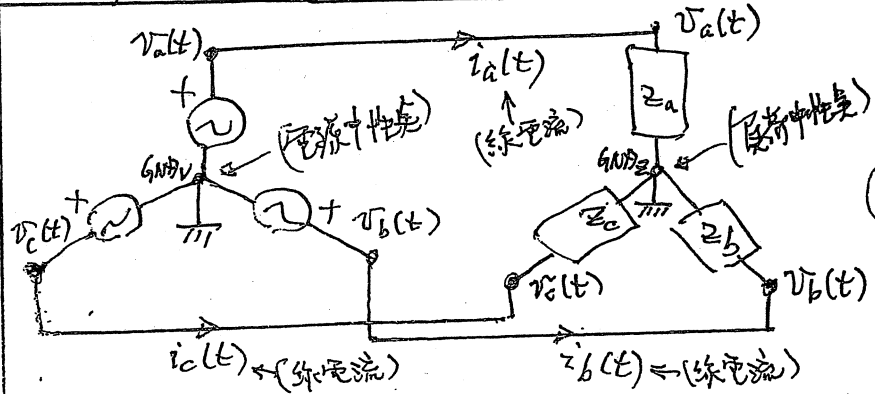 va(t)
va(t)
+
ia(t)
↑
(線電流)
Za
(電源中性点)
(負荷中性点)
GNDv
GNDz
+
+
vc(t)
vb(t)
Zc
Zb
vc(t)
vb(t)
ic(t) ←(線電流)
ib(t) ←(線電流)